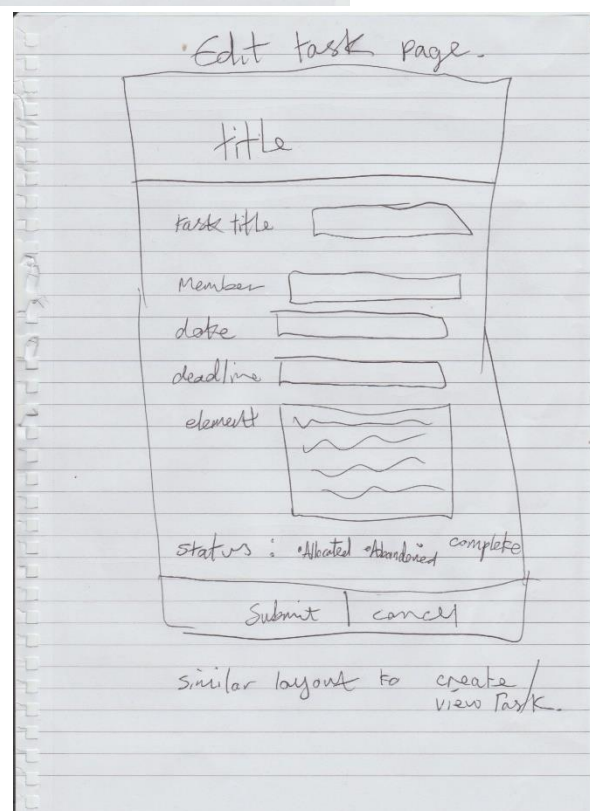 Edit task page.
title
task title
Member
date
deadline
element
status : • Allocated • Abandoned • complete
Submit | cancel
similar layout to create /
view Task.